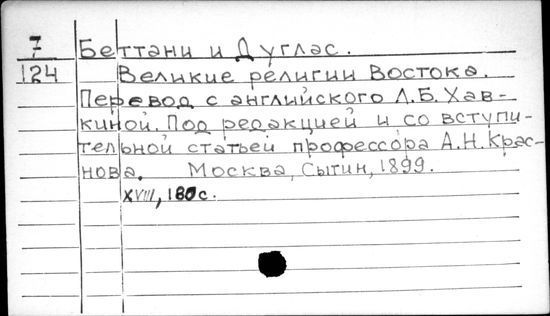 7 Беттани и Дуглас.
124 Великие религии Востока.
Перевод с английского Л.Б. Хав-
киной. Под редакцией и со вступи-
тельной статьей профессора А.Н. Крас-
нова. Москва, Сытин, 1899.
XVIII, 180 с.